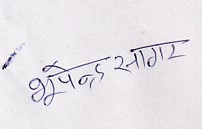 भूपेन्द्र सागर